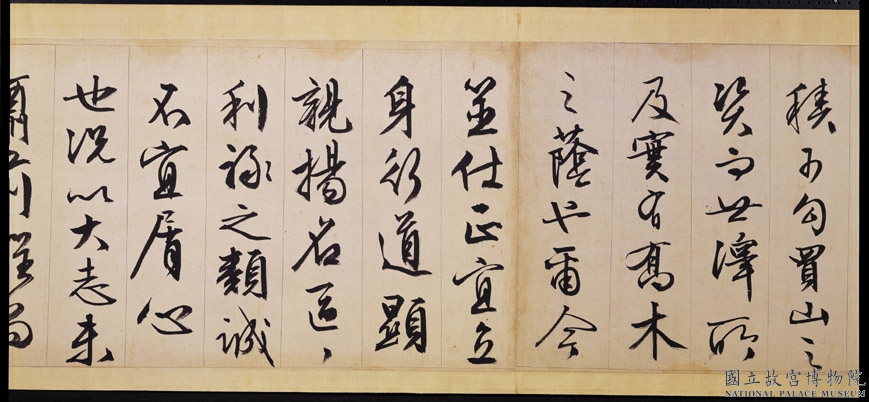 積可勾買山之
資而世澤所
及實有喬木
之蔭也爾今
筮仕正宜立
身行道顯
親揚名區々
利祿之類誠
不宜屑心
也況以大志未
國立故宮博物院
NATIONAL PALACE MUSEUM